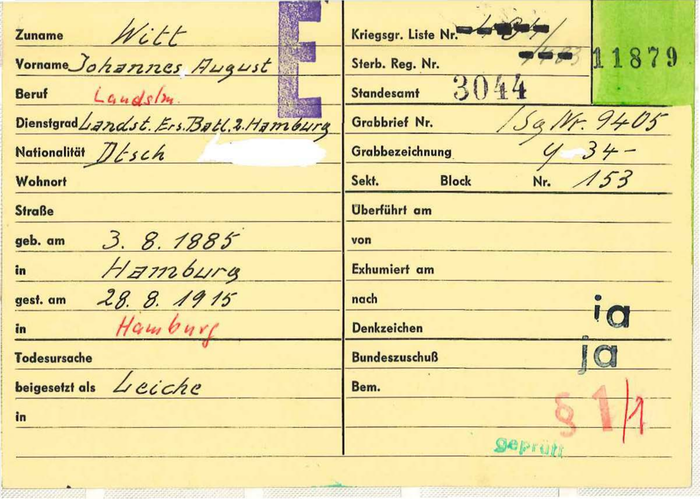 E
Zuname Witt
Vorname Johannes, August
Beruf Landstm.
Dienstgrad Landst. Ers. Batl. 2. Hamburg
Nationalität Dtsch
Wohnort
Straße
geb. am 3. 8. 1885
in Hamburg
gest. am 28. 8. 1915
in Hamburg
Todesursache
beigesetzt als Leiche
in
Kriegsgr. Liste Nr.
Sterb. Reg. Nr.
11879
Standesamt 3044
Grabbrief Nr. 9405
Grabbezeichnung y 34-
Sekt. Block Nr. 153
Überführt am
von
Exhumiert am
nach
Denkzeichen ia
Bundeszuschuß ja
Bem.
§ 1/1
geprüft